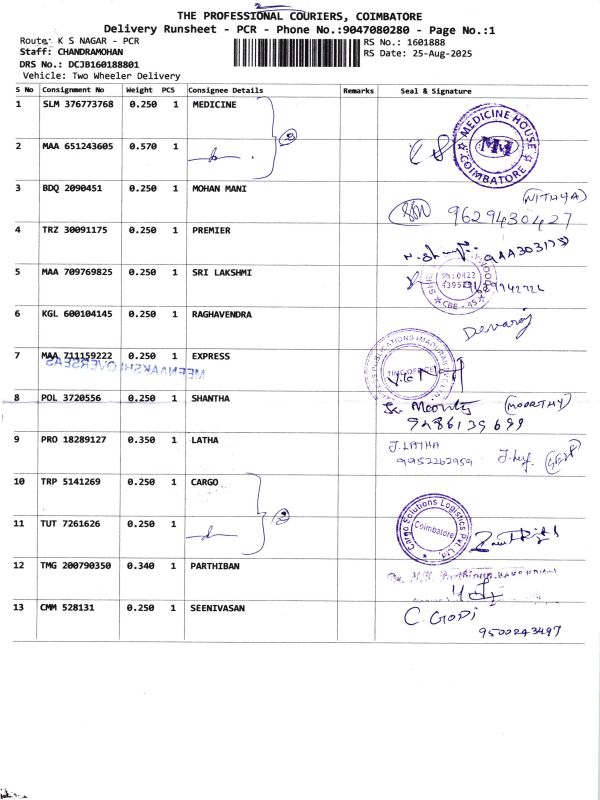 THE PROFESSIONAL COURIERS, COIMBATORE
Delivery Runsheet - PCR - Phone No.:9047080280 - Page No.:1
Route: K S NAGAR - PCR
RS No.: 1601888
Staff: CHANDRAMOHAN
RS Date: 25-Aug-2025
DRS No.: DCJB160188801
Vehicle: Two Wheeler Delivery
S No Consignment No Weight PCS Consignee Details Remarks Seal & Signature
1 SLM 376773768 0.250 1 MEDICINE
MEDICINE HOUSE
MM
COIMBATORE
2 MAA 651243605 0.570 1
3 BDQ 2090451 0.250 1 MOHAN MANI
(NITHYA)
9629430427
4 TRZ 30091175 0.250 1 PREMIER
5 MAA 709769825 0.250 1 SRI LAKSHMI
Ph: 0422
CBE - 45
6 KGL 600104145 0.250 1 RAGHAVENDRA
Devaraj
7 MAA 711159222 0.250 1 EXPRESS
MEENAAKSHI OVERSEAS
TIME OFFICE
8 POL 3720556 0.250 1 SHANTHA
(MOORTHY)
9486139699
9 PRO 18289127 0.350 1 LATHA
J. LATHA
9952262959
10 TRP 5141269 0.250 1 CARGO
Cargo Solutions Logistics Pvt. Ltd.
Coimbatore
11 TUT 7261626 0.250 1
12 TMG 200790350 0.340 1 PARTHIBAN
13 CMM 528131 0.250 1 SEENIVASAN
C. GOPI
9500243497